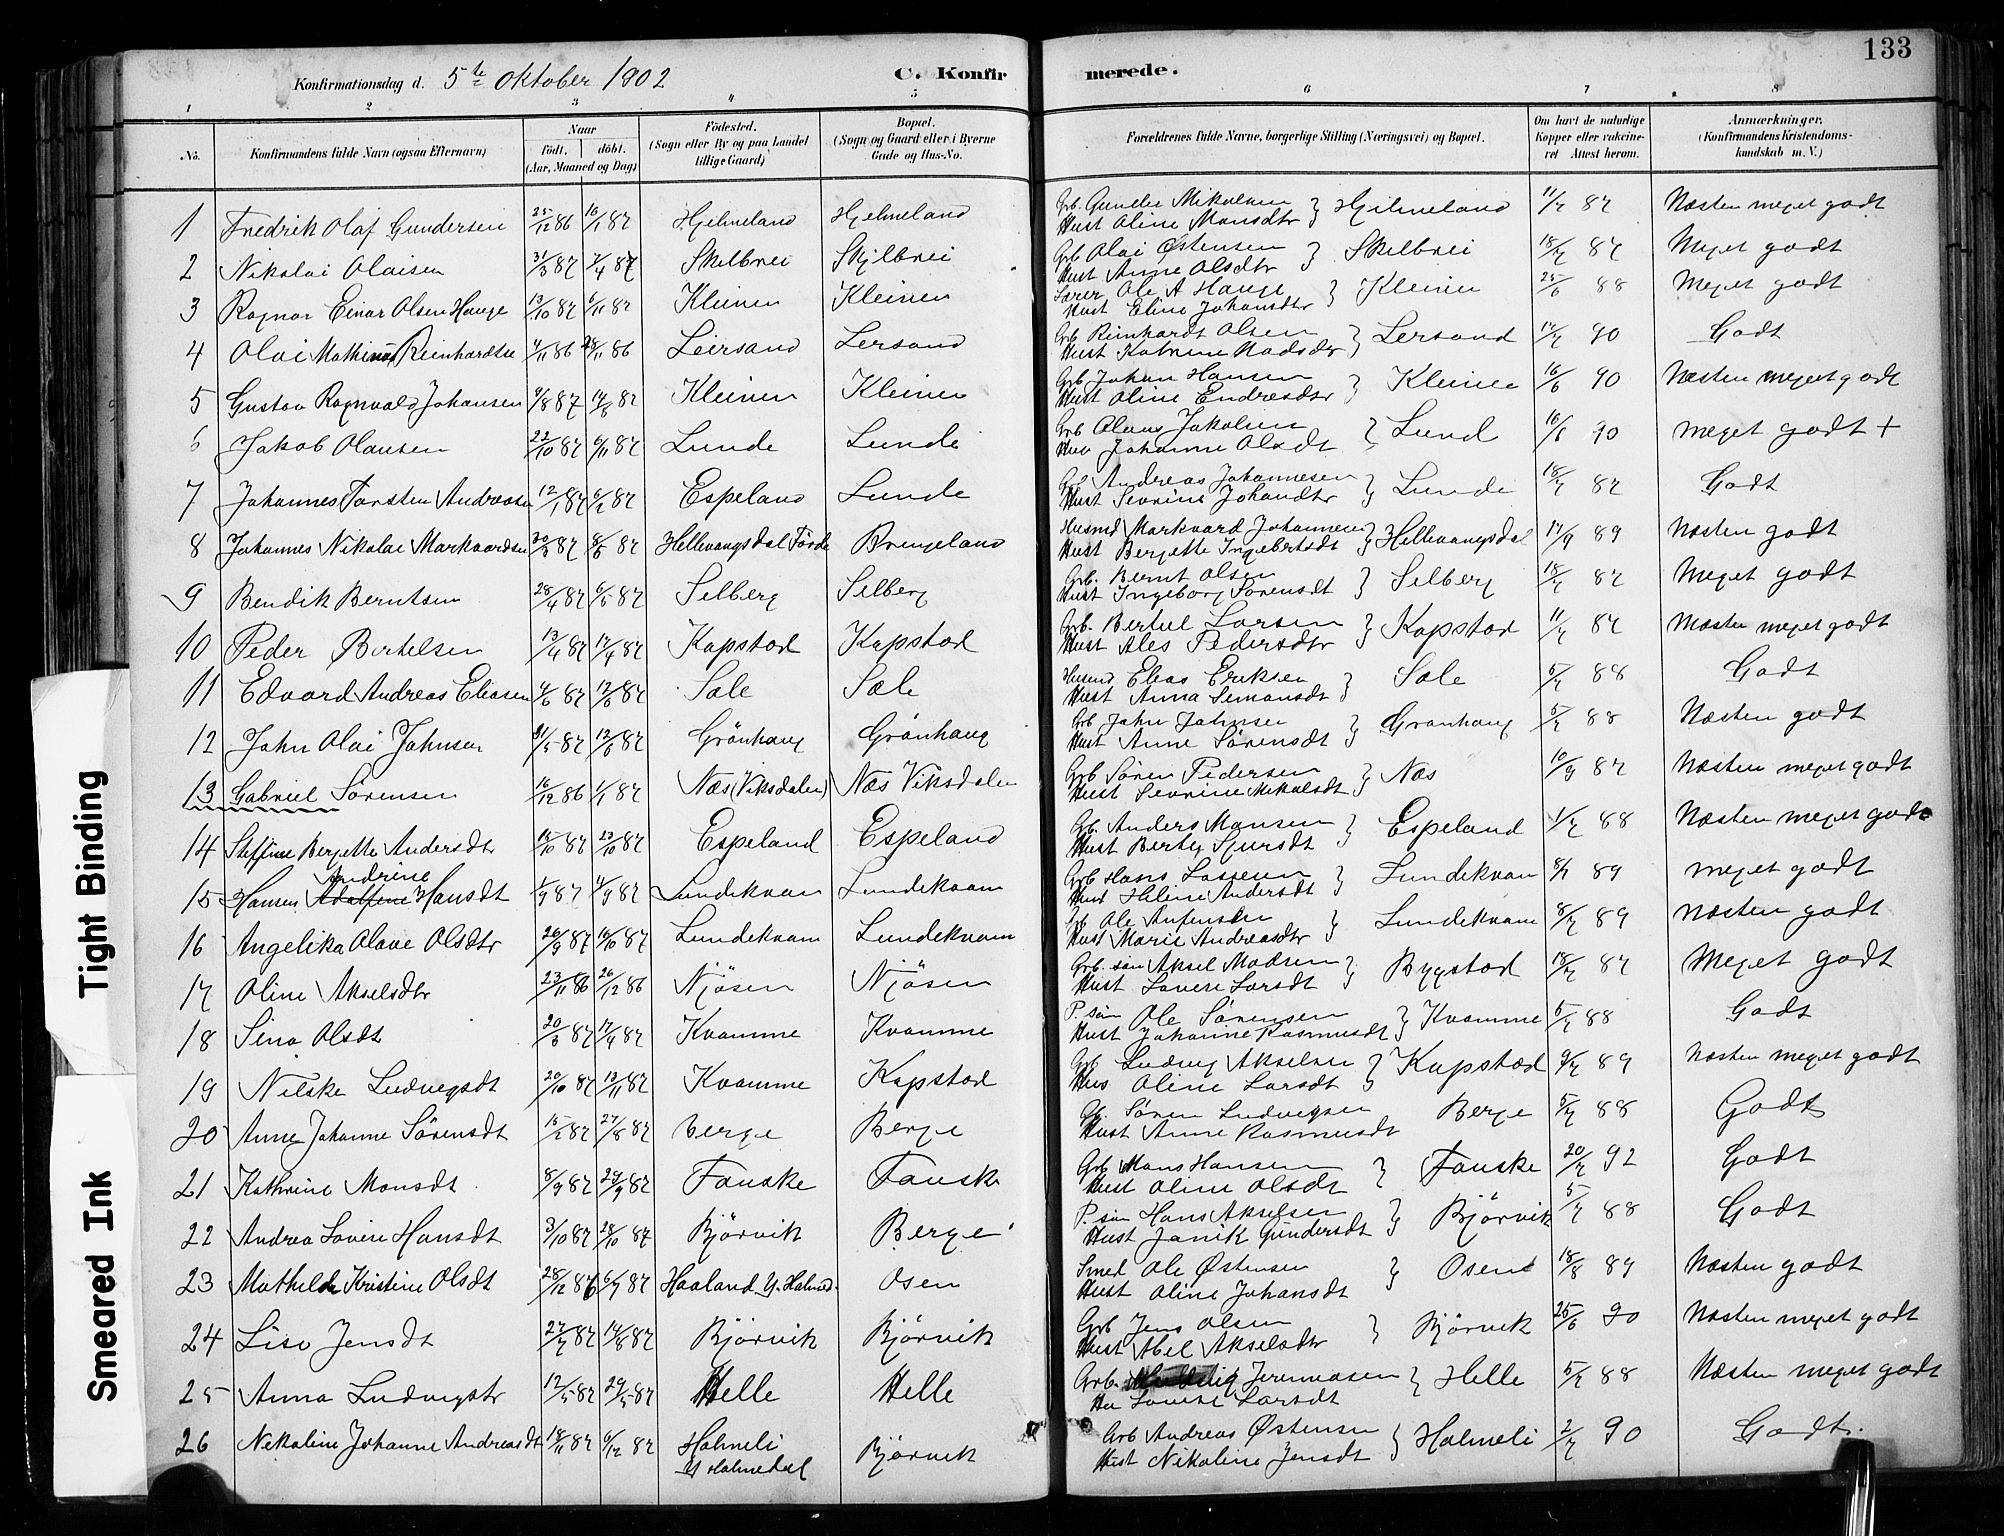 133
Konfirmationsdag d. 5te Oktober 1902 C. Konfirmerede.
1 2 3 4 5 6 7 8
No. Konfirmandens fulde Navn (ogsaa Efternavn) Naar födt. döbt. (Aar, Maaned og Dag) Födested. (Sogn eller By og paa Landet tillige Gaard) Bopæl. (Sogn og Gaard eller i Byerne Gade og Hus-No. Forældrenes fulde Navne, borgerlige Stilling (Næringsvei) og Bopæl. Om havt de naturlige Kopper eller vaccineret Attest herom. Anmærkninger. (Konfirmandens Kristendomskundskab m. V.)
1 Fredrik Olaf Gundersen 25/12 86 16/1 87 Hjelmeland Hjelmeland Grb. Gunder Mikalsen Hust Oline Monsdtr } Hjelmeland 11/7 87 Næsten meget godt
2 Nikolai Olaisen 31/3 87 7/4 87 Skilbrei Skjlbrei Grb Olai Østensen Hust Anne Olsdtr } Skilbrei 18/7 87 Meget godt
3 Ragnar Einar Olsen Hauge 13/10 87 6/11 87 Kleiven Kleiven Lærer Ole A Hauge Hust Eline Johansdtr } Kleiven 25/6 88 Meget godt
4 Olai Mathias Reinhardtsen 4/11 86 28/11 86 Leirsand Lersand Grb Reinhardt Olsen Hust Katrine Madsdtr } Lersand 17/7 90 Godt
5 Gustav Ragnvald Johansen 9/8 87 14/8 87 Kleiven Kleiven Grb Johan Hansen Hust Oline Endresdtr } Kleiven 16/6 90 Næsten meget godt
6 Jakob Olausen 22/10 87 6/11 87 Lunde Lunde Grb Olaus Jakobsen Hus Johanne Olsdt } Lund 16/6 90 meget godt +
7 Johannes Torsten Andreassen 12/1 87 6/2 87 Espeland Lunde Grb Andreas Johannesen Hust Sevrine Johandtr } Lunde 18/7 87 Godt
8 Johannes Nikolai Markvardsen 20/3 87 8/5 87 Hellevangsdal Förde Brengeland Husmd Markvard Johannesen Hust Bergette Ingebertsdt } Hellevangsdal 17/9 89 Næsten godt
9 Bendik Berntsen 28/4 87 6/5 87 Selberg Selberg Grb. Bernt Olsen Hust Ingeborg Sörensdt } Selberg 18/7 87 Meget godt
10 Peder Bertelsen 13/4 87 17/4 87 Kapstad Kapstad Grb. Bertel Larsen Hust Ales Pedersdtr } Kapstad 11/7 87 Næsten meget godt
11 Edvard Andreas Eliasen 4/6 87 12/6 87 Sæle Sæle Husmd Elias Eriksen Hust Anna Simonsdt } Sæle 5/7 88 Godt
12 John Olai Johnsen 31/5 87 12/6 87 Grönhaug Grönhaug Grb John Johnsen Hust Anne Sörensdt } Grönhaug 5/7 88 Næsten godt
13 Gabriel Sörensen 16/12 86 1/1 87 Næs (Viksdalen) Næs Viksdalen Grb Sören Pedersen Hust Sevrine Mikalsdt } Næs 10/9 87 Næsten meget godt
14 Steffine Bergette Andersdtr 15/10 87 23/10 87 Espeland Espeland Grb. Anders Monsen Hust Berte Sjursdt } Espeland 1/7 88 Næsten meget godt
Andrine
15 Hansen Adolfine Hansdt 1/9 87 11/9 87 Lundekvam Lundekvam Grb Hans Lassesen Hust Heline Andersdt } Lundekvam 8/7 89 meget godt
16 Angelika Olave Olsdtr 26/9 87 16/10 87 Lundekvam Lundekvam Grb Ole Anfensen Hust Marie Andreasdtr } Lundekvam 8/7 89 næsten godt
17 Oline Akselsdtr 23/11 86 26/12 86 Njösen Njösen Grb. sön Aksel Madsen Hust Lovise Larsdt } Bygstad 18/7 87 Meget godt
18 Sina Olsdt 20/3 87 17/4 87 Kvamme Kvamme P. sön Ole Sörensen Hust Johanne Rasmusdt } Kvamme 5/7 88 Godt
19 Nilske Ludvigsdt 20/10 87 13/11 87 Kvamme Kapstad Grb Ludvig Akselsen Hus Oline Larsdt } Kapstad 9/7 89 Næsten meget godt
20 Anne Johanne Sörensdt 15/2 87 27/8 87 Berge Berge Gb. Sören Ludvigsen Hust Anne Rasmusdt Berge 5/7 88 Godt
21 Kathrine Monsdt 8/9 87 29/9 87 Fauske Fauske Grb Mons Hansen Hust Oline Olsdt } Fauske 20/7 92 Godt
22 Andrea Lovise Hansdt 3/10 87 28/10 87 Bjørvik Berge P. sön Hans Akselsen Hust Janik Gundersdt } Bjørvik 5/7 88 Godt
23 Mathilde Kristine Olsdt 28/12 86 6/7 87 Haaland Y. Holmed. Osen Smed Ole Østensen Hust Oline Johansdt } Osen 18/8 89 Næsten godt
24 Lise Jensdt 27/7 87 14/8 87 Bjørvik Bjørvik Grb Jens Olsen Hust Abel Akselsdtr } Bjørvik 25/6 90 Næsten meget godt
25 Anna Ludvigstr 12/5 87 29/5 87 Helle Helle Grb. Jeremiasen Hu Lovise Larsdt } Helle 5/7 88 Næsten meget godt
26 Nikoline Johanne Andreasdt 18/11 87 6/12 87 Holmeli Y Holmedal Bjørvik Grb Andreas Østensen Hust Nikoline Jensdt } Holmeli 2/7 90 Godt.
Tight Binding
Smeared Ink